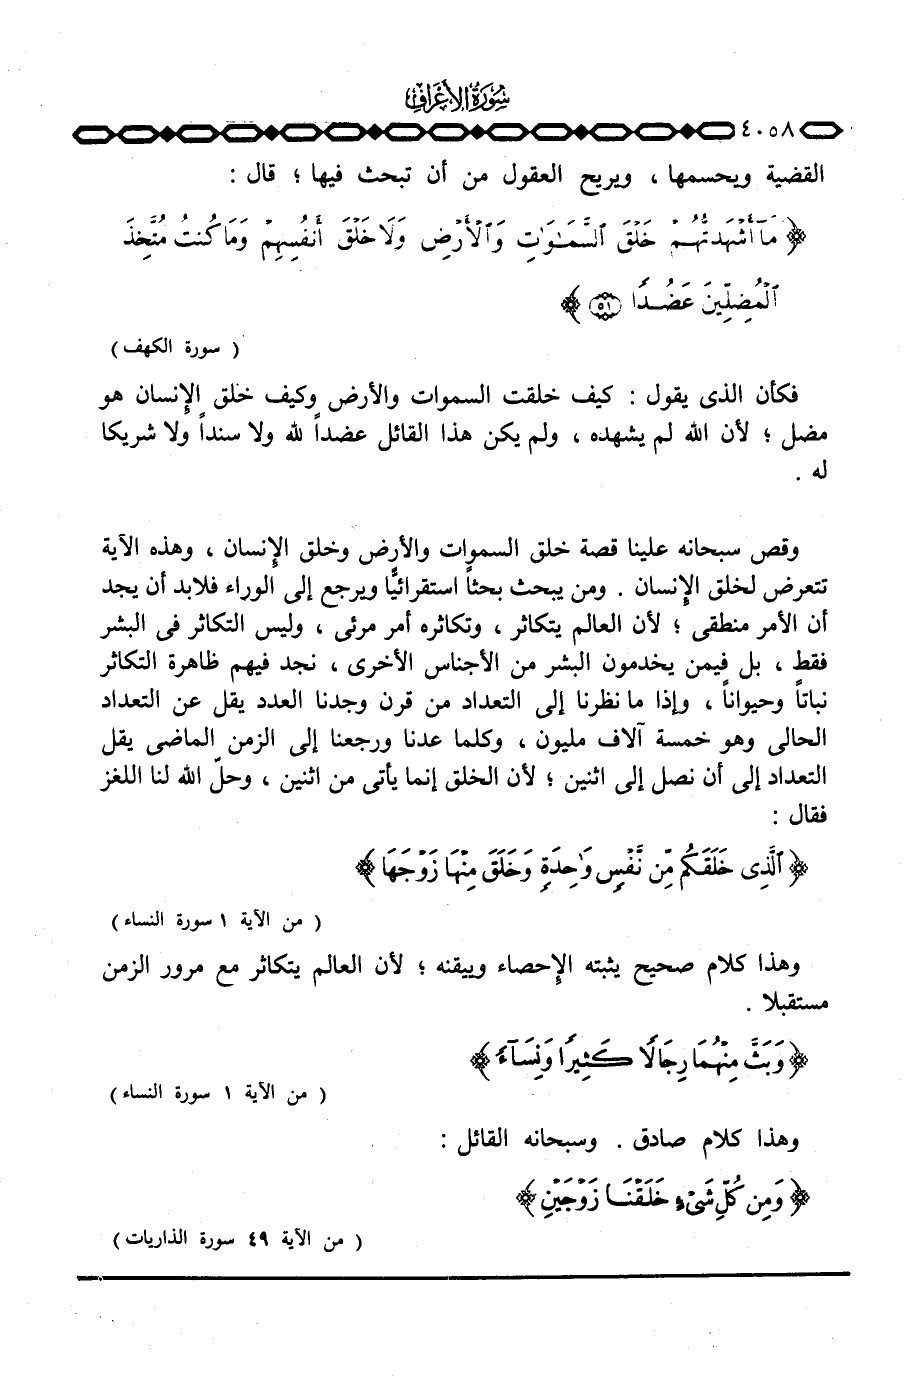 سُورَةُ الأَعْرَافِ
٤٠٥٨
القضية ويحسمها ، ويريح العقول من أن تبحث فيها ؛ قال :
﴿ مَآ أَشْهَدتُّهُمْ خَلْقَ ٱلسَّمَٰوَٰتِ وَٱلْأَرْضِ وَلَا خَلْقَ أَنفُسِهِمْ وَمَا كُنتُ مُتَّخِذَ
ٱلْمُضِلِّينَ عَضُدًا ﴿٥١﴾ ﴾
( سورة الكهف )
فكأن الذى يقول : كيف خلقت السموات والأرض وكيف خلق الإنسان هو
مضل ؛ لأن الله لم يشهده ، ولم يكن هذا القائل عضداً لله ولا سنداً ولا شريكا
له .
وقص سبحانه علينا قصة خلق السموات والأرض وخلق الإنسان ، وهذه الآية
تتعرض لخلق الإنسان . ومن يبحث بحثاً استقرائيًّا ويرجع إلى الوراء فلابد أن يجد
أن الأمر منطقى ؛ لأن العالم يتكاثر ، وتكاثره أمر مرئى ، وليس التكاثر فى البشر
فقط ، بل فيمن يخدمون البشر من الأجناس الأخرى ، نجد فيهم ظاهرة التكاثر
نباتاً وحيواناً ، وإذا ما نظرنا إلى التعداد من قرن وجدنا العدد يقل عن التعداد
الحالى وهو خمسة آلاف مليون ، وكلما عدنا ورجعنا إلى الزمن الماضى يقل
التعداد إلى أن نصل إلى اثنين ؛ لأن الخلق إنما يأتى من اثنين ، وحلّ الله لنا اللغز
فقال :
﴿ ٱلَّذِى خَلَقَكُم مِّن نَّفْسٍ وَٰحِدَةٍ وَخَلَقَ مِنْهَا زَوْجَهَا ﴾
( من الآية ١ سورة النساء )
وهذا كلام صحيح يثبته الإحصاء وييقنه ؛ لأن العالم يتكاثر مع مرور الزمن
مستقبلا .
﴿ وَبَثَّ مِنْهُمَا رِجَالًا كَثِيرًا وَنِسَآءً ﴾
( من الآية ١ سورة النساء )
وهذا كلام صادق . وسبحانه القائل :
﴿ وَمِن كُلِّ شَىْءٍ خَلَقْنَا زَوْجَيْنِ ﴾
( من الآية ٤٩ سورة الذاريات )